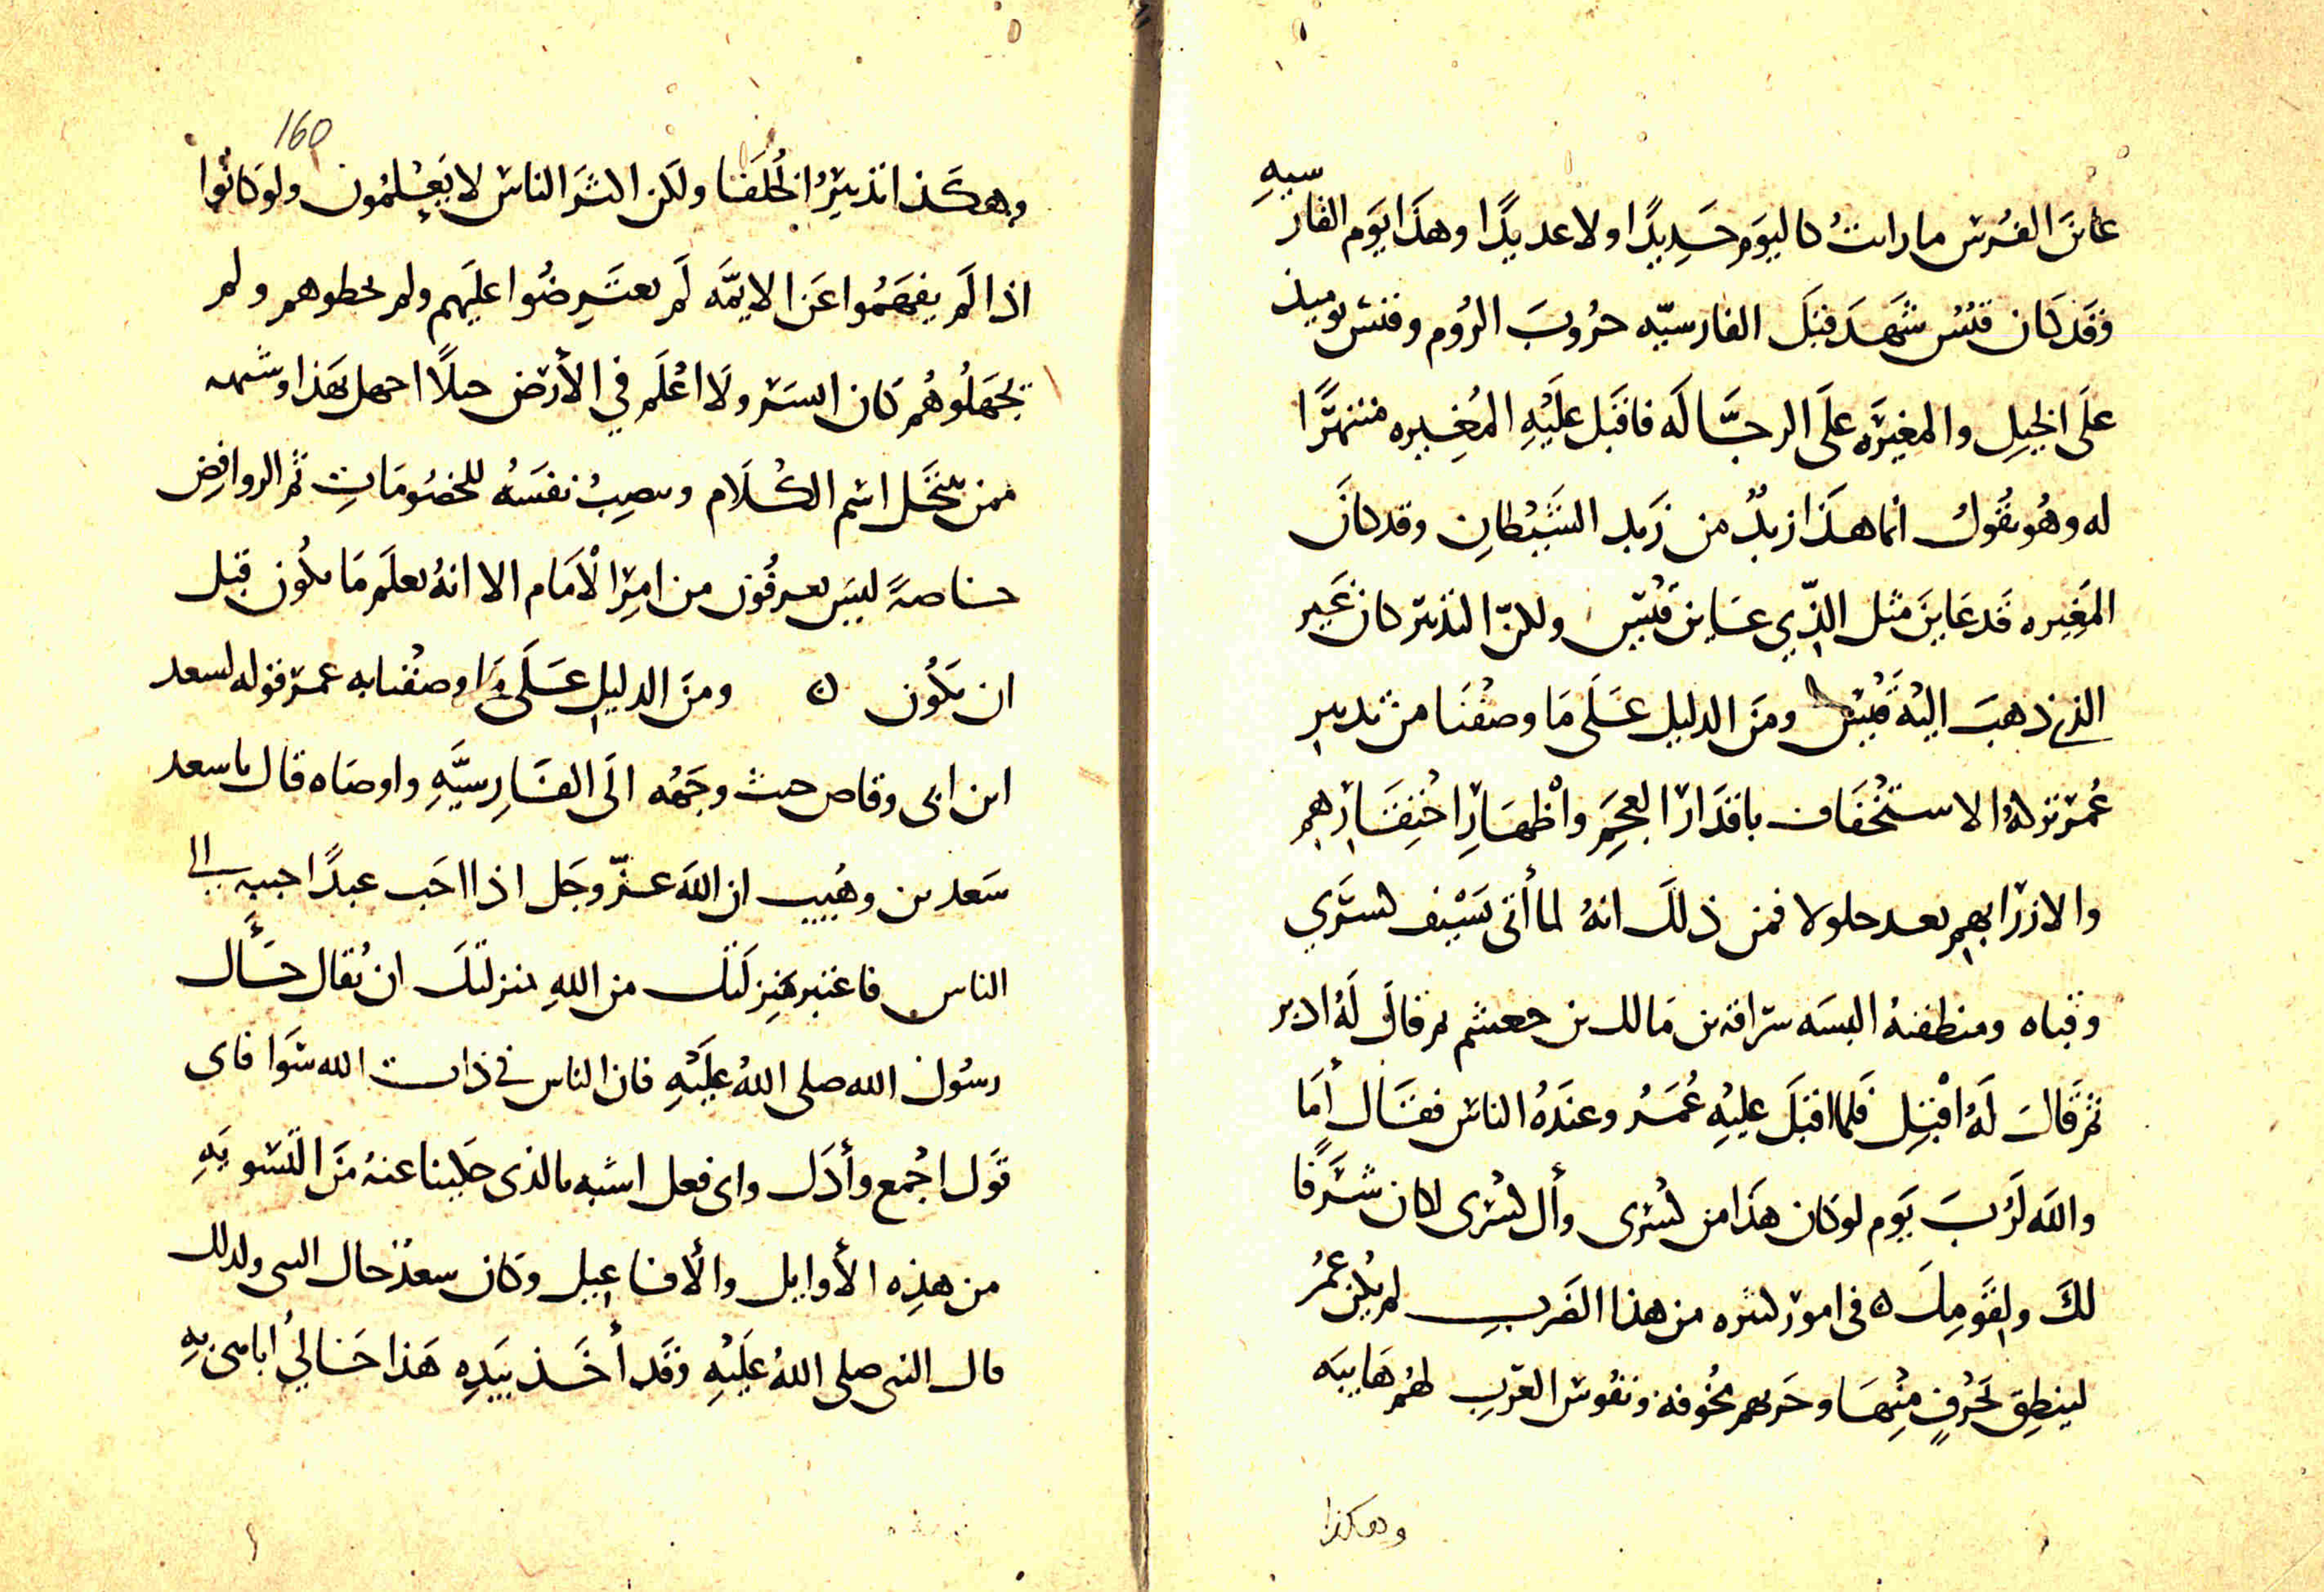 عاين الفرس ما رايت كاليوم حديدًا ولا عديدًا وهذا يوم القادسيه
وقد كان قيس شهد قبل القادسيّه حروب الروم وقيس يوميذ
على الخيل والمغيره على الرجّاله فاقبل عليه المغيره منتهرًا
له وهو يقول انما هذا زبدٌ من زبد الشيطان وقد كان
المغيره قد عاين مثل الذي عاين قيس ولكن التدبير كان غير
الذي ذهب اليه قيس ومن الدليل على ما وصفنا من تدبير
عمر تركه الاستخفاف باقدار العجم واظهار احتقارهم
والازرا بهم بعد جلولا فمن ذلك انه لما أتى بسيف كسرى
وقباه ومنطقته البسه سراقه بن مالك بن جعشم ثم قال له ادبر
ثم قال له اقبل فلما اقبل عليه عمر وعنده الناس فقال أما
والله لرب يوم لو كان هذا من كسرى وأل كسرى لكان شرفًا
لك ولقومك ٥ فى امور كثيره من هذا الضرب لم يكن عمر
لينطق بحرف منها وحربهم مخوفة ونفوس العرب لهم هايبه
وهكذا
160
وهكذا تدبير الخلفا ولكن اكثر الناس لا يعلمون ولو كانوا
اذا لم يفهموا عن الايمّه لم يعترضوا عليهم ولم يخطوهم ولم
يجهلوهم كان ايسر ولا اعلم في الأرض جيلًا اجهل بهذا وشبهه
ممن ينتحل اسم الكلام وينصب نفسه للخصومات ثم الروافض
خاصةً ليس يعرفون من امر الامام الا انه يعلم ما يكون قبل
ان يكون ٥ ومن الدليل على ما وصفنا به عمر قوله لسعد
ابن ابى وقاص حيث وجهه الى القادسيّه واوصاه قال يا سعد
سعد بن وهيب ان الله عزّ وجل اذا احب عبدًا حببه الى
الناس فاعتبر منزلتك من الله بمنزلتك ان يقال خأل
رسول الله صلى الله عليه فان الناس في ذات الله سوا فاى
قول اجمع وأدل واى فعل اشبه بالذى حكينا عنه من التسويه
من هذه الأوايل والأفاعيل وكان سعد خال النبى ولذلك
قال النبى صلى الله عليه وقد أخذ بيده هذا خالي أباهى به